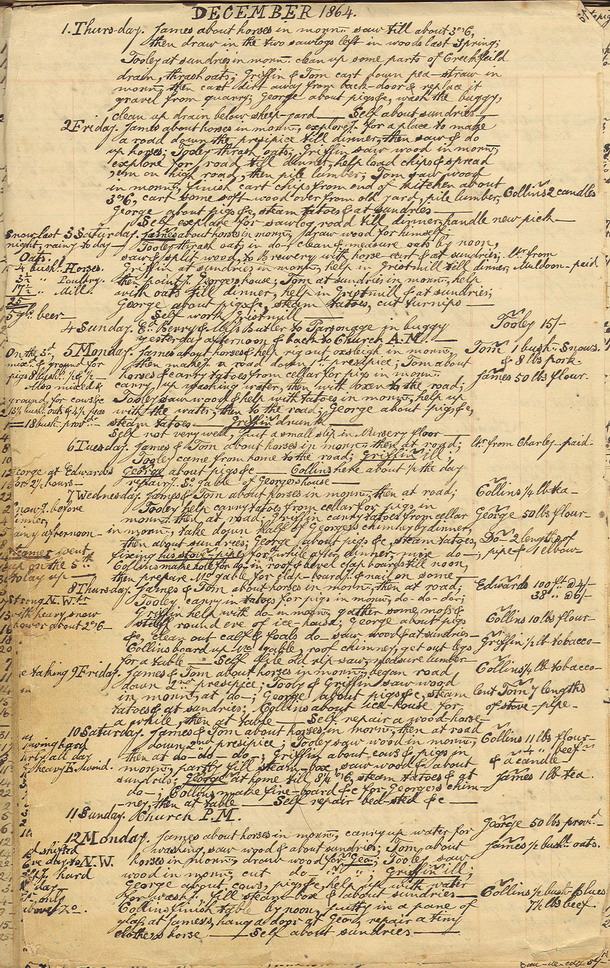 DECEMBER 1864.
1. Thursday. James about horses in mornn, saw till about 3 o'c,
then draw in the two sawlogs left in woods last Spring;
Tooley at sundries in mornn, clean up some parts of Creekfield
drain, thrash oats; Griffin & Tom cast down pea-straw in
mornn, then cart dirt away from back-door & replace it
gravel from quarry; George about pigs &c, wash the buggy,
clean up drain below sheep-yard — Self about sundries —
2 Friday. James about horses in mornn, explorg. for a place to make
a road down the precipice till dinner, then saw & do
up horses; Tooley thrash oats; Griffin saw wood in mornn,
explore for road till dinner, help load chips & spread
on high road, then pile lumber; Tom saw wood
in mornn, finish cart chips from end of kitchen about
3 o'c, cart some soft wood over from old yard, pile lumber;
George about pigs &c, steam tatoes & at sundries —
Collins 2 candles
Self explore for sawlog road till dinner, handle new pick —
Snow last 3 Saturday. James about horses in mornn, draw wood for himself;
night, rainy to day — Tooley thrash oats in do., clean & measure oats by noon,
saw & split wood, to Brewery with horse & cart & at sundries;
Oats.
4 bush. Horses.
" Poultry.
" Mill.
Griffin at sundries in mornn, help in Gristmill till dinner,
from Muldoon - paid
then paint Georges house; Tom at sundries in mornn, help
with oats till dinner, help in Gristmill & at sundries;
George about pigs &c, steam tatoes, cut turnips —
Self work Gristmill —
5 gs. beer —
4 Sunday. & Butler to Parsonage in buggy
yesterday afternoon & back to Church A.M. —
Tooley 15/-
5 Monday. James about horses & help rig out oxsleigh in mornn,
On the 3d,
then make a road down 1st precipice; Tom about
horses & carry tatoes from cellar for pigs in mornn,
Tom 1 bush. Snows.
& 8 lbs pork -
carry up washing water, then with oxen to the road;
James 50 lbs flour.
Also mixed &
ground for cows &c
Tooley saw wood & help with tatoes in mornn, help up
with the water, then to the road; George about pigs &c,
steam tatoes — Griffin drunk —
Self not very well, put a small slip in Nursery floor —
6 Tuesday. James & Tom about horses in mornn, then at road;
from Charley - paid
Tooley came from home to the road; Griffin ill;
George at Edwards
for 2½ hours -
George about pigs &c — Collins here about ½ the day
repairg. So. gable of Georges house —
7 Wednesday. James & Tom about horses in mornn, then at road;
Collins ¼ lb tea -
Snow before
dinner,
rainy afternoon -
Tooley help carry tatoes from cellar for pigs in
mornn, then at road; Griffin carry tatoes from cellar
George 50 lbs flour -
in mornn, take down ledge of Georges chimney by dinner,
then about sundries; George about pigs &c, steam tatoes,
Do. 2 lengths of
pipe & elbow
Steamer went
up on the 5th
fixing his stove-pipe for a while after dinner, mix do —
Collins make hole for do. in roof & level clapboards till noon,
then prepare No. gable for clap-boards & nail on some —
8 Thursday. James & Tom about horses in mornn, then at road;
Edwards 100 ft D4/-
38" D6/-
Strong N.W.
with heavy snow
shower about 2 o'c
Tooley carry in tatoes for pigs in mornn, do-do-do;
Griffin help with do. in mornn, gather some moss &
stuff round eve of ice-house; George about pigs
Collins 10 lbs flour
&c, clean out calf & foals do — saw wood & at sundries —
Griffin ½ lb tobacco -
Collins board up No. gable, roof chimney, get out legs
for a table — Self file old rip saw, measure lumber
Collins ½ lb tobacco -
Ice taking 9 Friday. James & Tom about horses in mornn, began road
down 2nd precipice; Tooley & Griffin saw wood
in mornn, at do — George about pigs &c, steam
lent Tom 7 lengths
of stove-pipe -
tatoes & at sundries; Collins about ice-house for
a while, then at table — Self repair a wood-horse —
10 Saturday. James & Tom about horses in mornn, then at road
down 2nd precipice; Tooley saw wood in mornn,
Collins 11 lbs flour
" 4 " beef
& a candle
then at do - do - do; Griffin about cows & pigs in
mornn, partly fill steam-box, saw wood & about
sundries; George at home till 8¼ o'c, steam tatoes & at
James 1 lb tea.
do —; Collins make fire-board &c for Georges chim-
ney, then at table — Self repair bed-sted &c —
11 Sunday. Church P.M.
George 50 lbs provr.
12 Monday. James about horses in mornn, carry up water for
James ½ bush. oats.
washing, saw wood & about sundries; Tom about
N.W.
horses in mornn, draw wood for Geo; Tooley saw
wood in mornn, cut do — " — "; Griffin ill;
George about cows, pigs &c, help up with water
for wash., fill steam-box & about sundries —
Collins ½ bush. Blues
7½ lbs beef.
Collins finish table by noon, putty in a pane of
glass at James', hang a door at Geos., repair a tiny
clothes horse — Self about sundries —